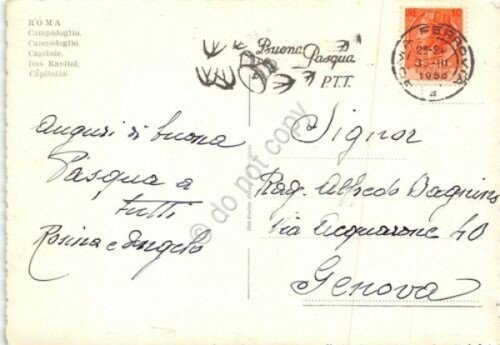 ROMA
Campidoglio.
Campidoglio.
Capitole.
Das Kapitol.
Capitolio.
Buona Pasqua
P.T.T.
ROMA FERROVIA
1956
10
Auguri di buona
Pasqua a
tutti
Rosina e Angelo
Signor
Rag. Alfredo Bagnino
Via Acquarone 40
Genova
do not copy